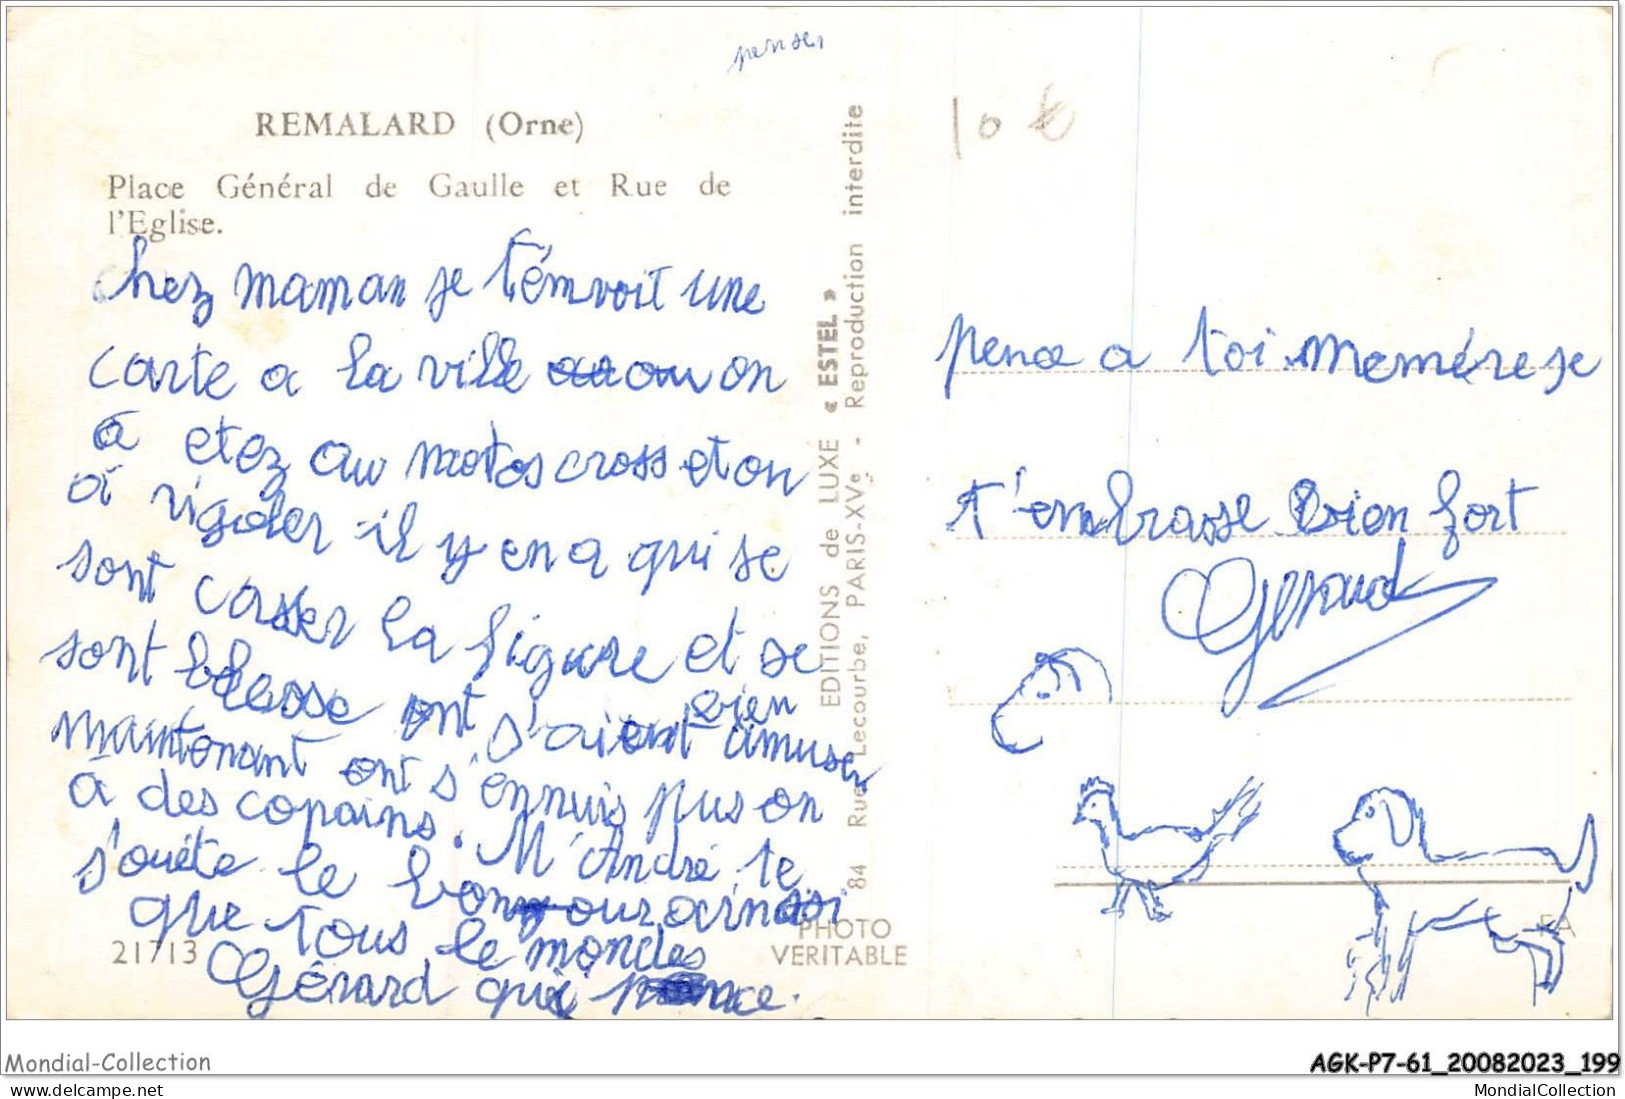 penser
REMALARD (Orne)
Place Général de Gaulle et Rue de
l'Eglise.
chez maman je t'émvoit une
carte a la ville on
à etez au motos cross et on
a rigoler il y en a qui se
sont casser la figure et se
sont blesse ont s'aient bien amuser
maintonant ont s'ennuis pus on
a des copains. M André te
s'ouéte le bonjour ainssi
que tous le mondes
Gérard qui pence.
21713
EDITIONS de LUXE « ESTEL »
84 Rue Lecourbe, PARIS-XVe - Reproduction interdite
PHOTO
VERITABLE
10 €
pence a toi memére je
t'embrasse bien fort
Gerard
Mondial-Collection
AGK-P7-61_20082023_199
https://www.delcampe.net/fr/collections/store/Mondial-Collection
MondialCollection